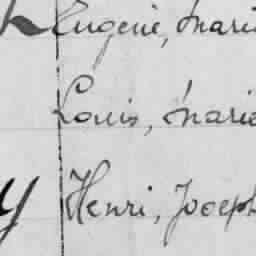 Eugène, Marie
Louis, Marie
y Henri, Joseph